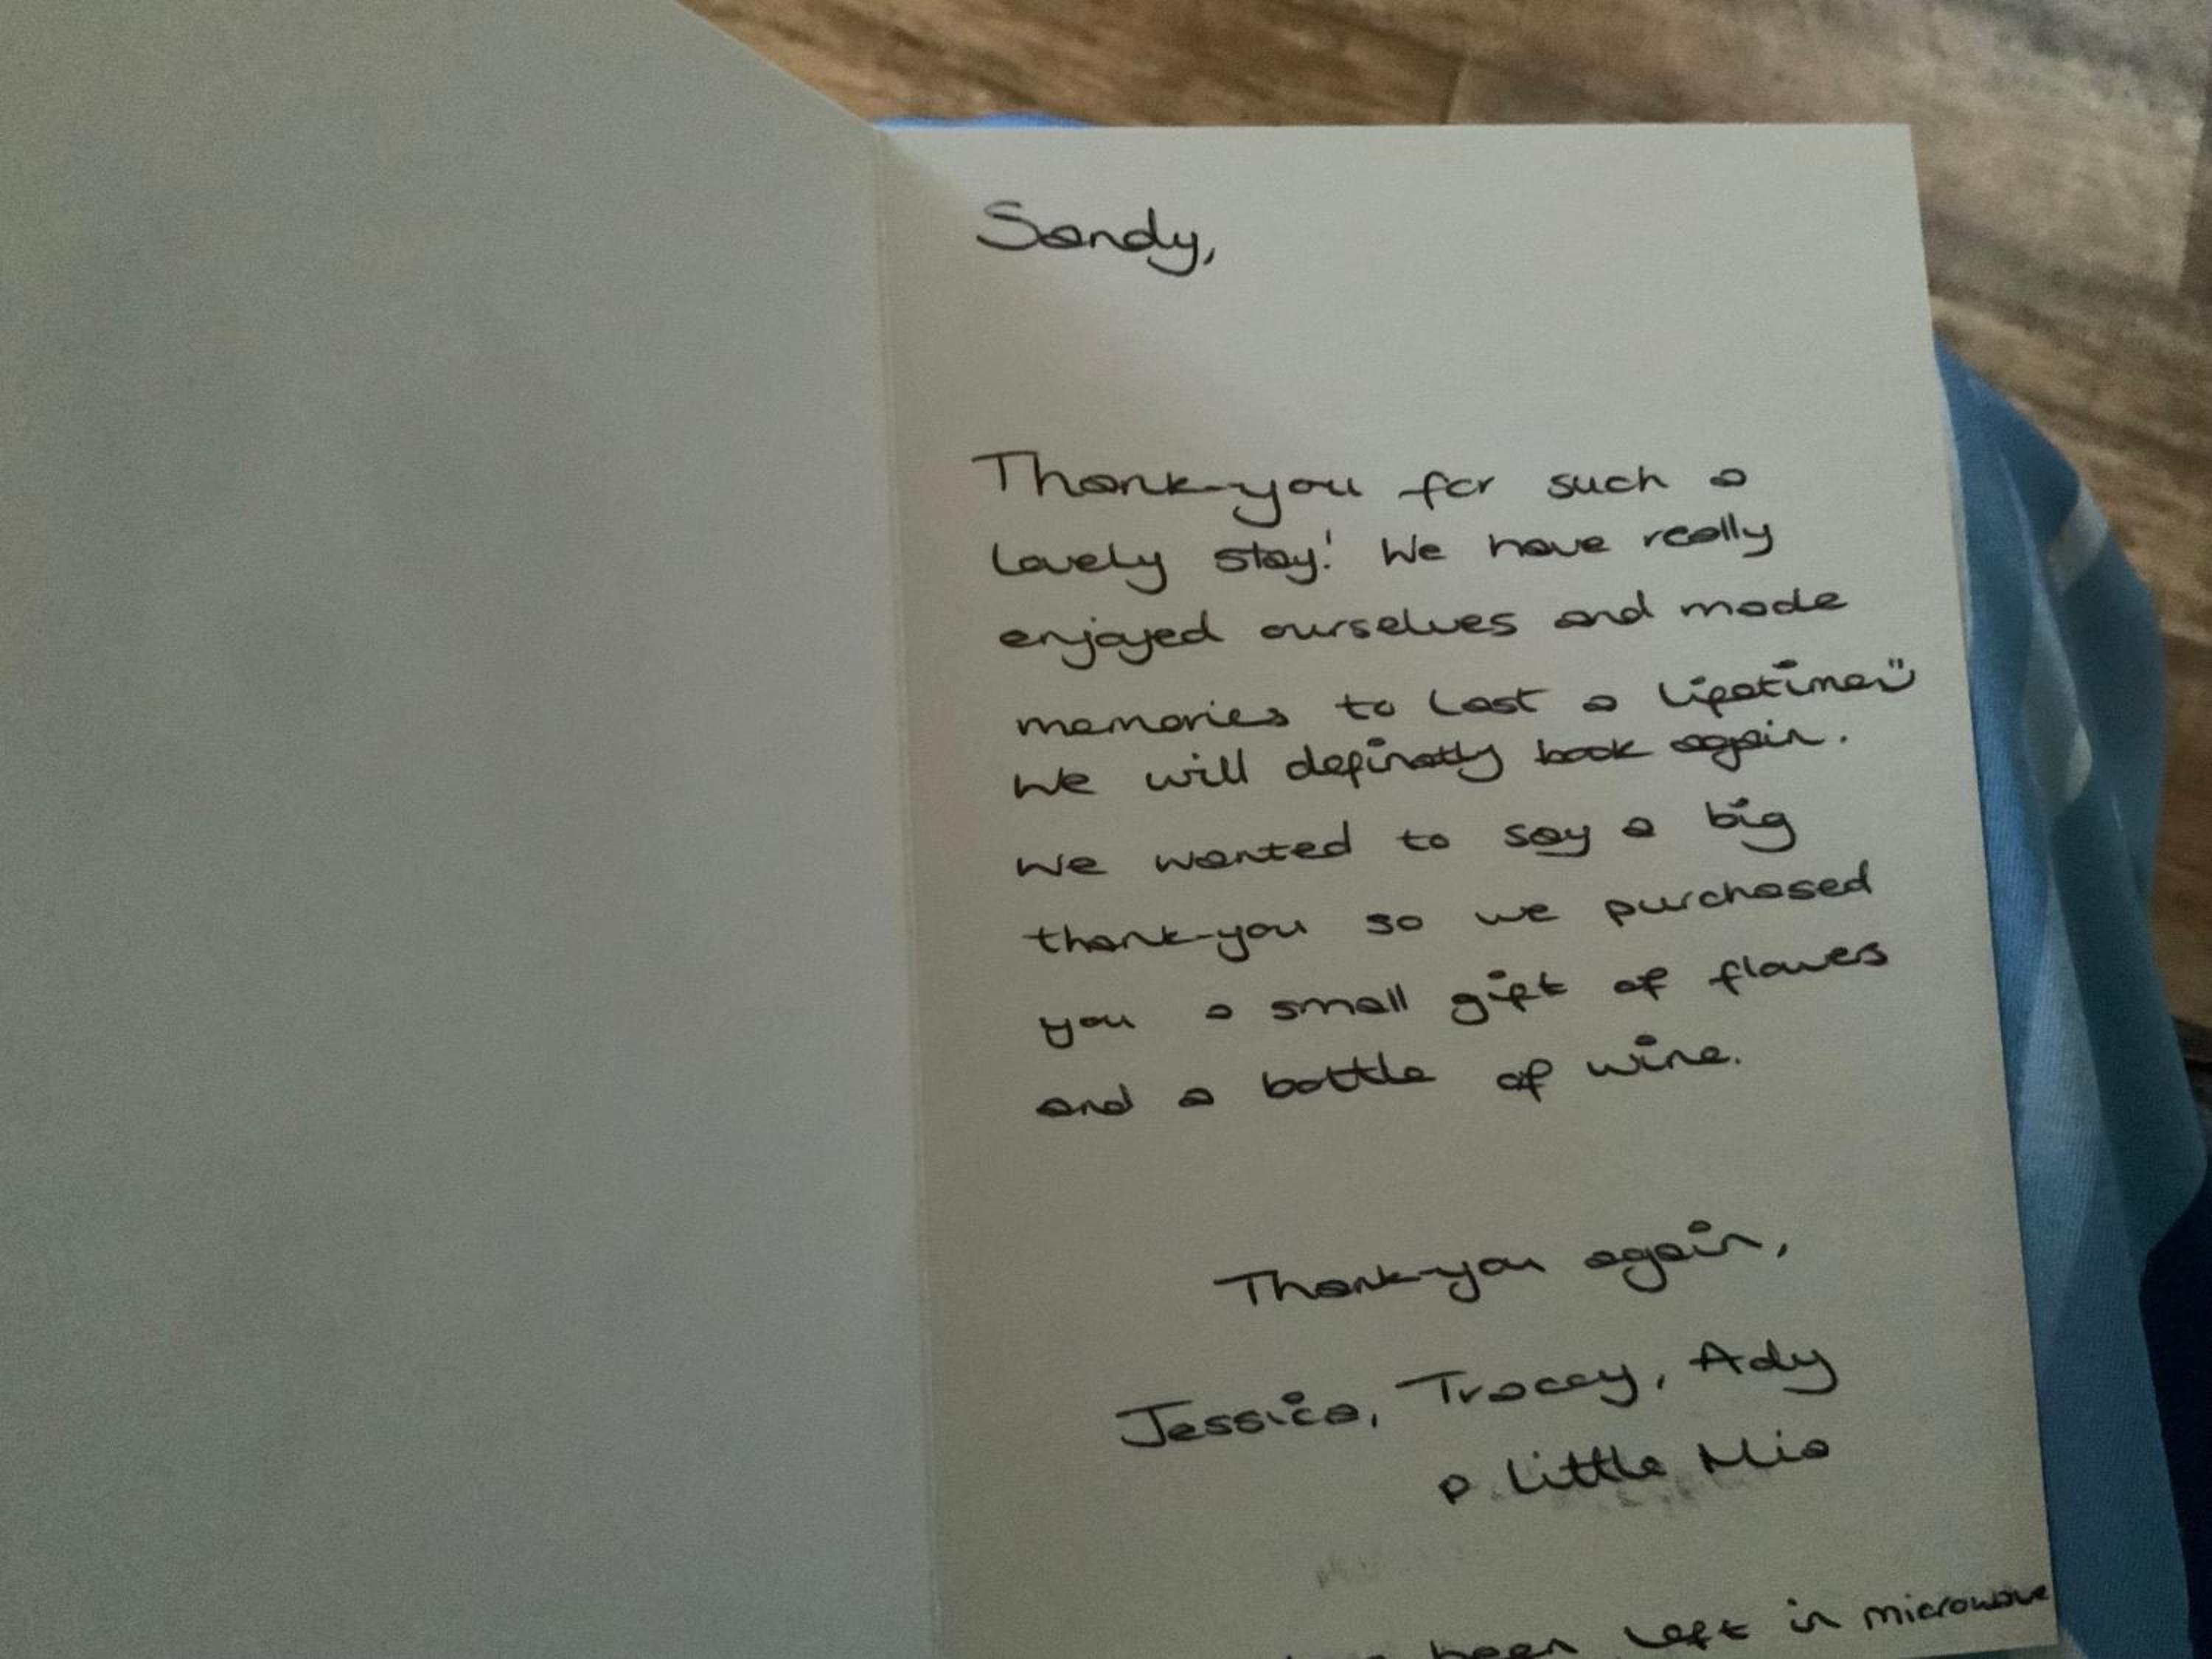 Sandy,
Thank-you for such a
lovely stay! We have really
enjoyed ourselves and made
memories to last a lifetime :)
We will definatly book again.
We wanted to say a big
thank-you so we purchased
you a small gift of flowes
and a bottle of wine.
Thank-you again,
Jessica, Tracey, Ady
& Little Mia
been left in microwave